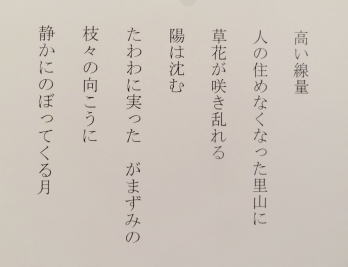 高い線量
人の住めなくなった里山に
草花が咲き乱れる
陽は沈む
たわわに実った　がまずみの
枝々の向こうに
静かにのぼってくる月